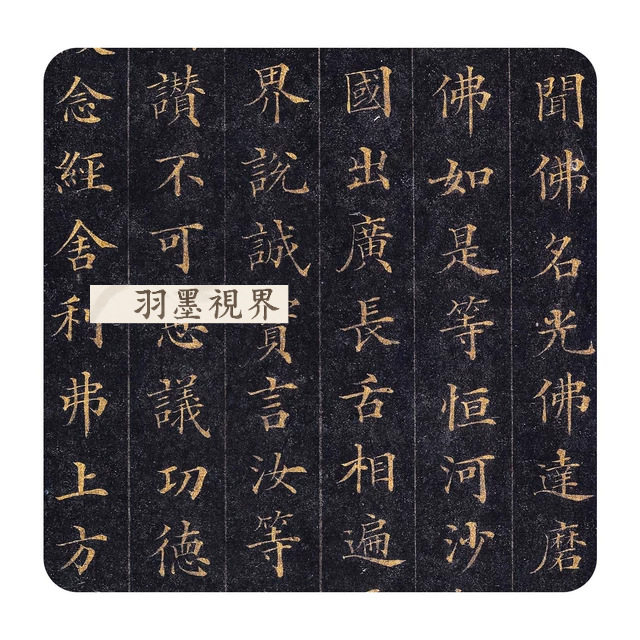 聞佛名光佛達磨
佛如是等恒河沙
國出廣長舌相遍
界說誠實言汝等
讚不可思議功德
念經舍利弗上方
羽墨視界